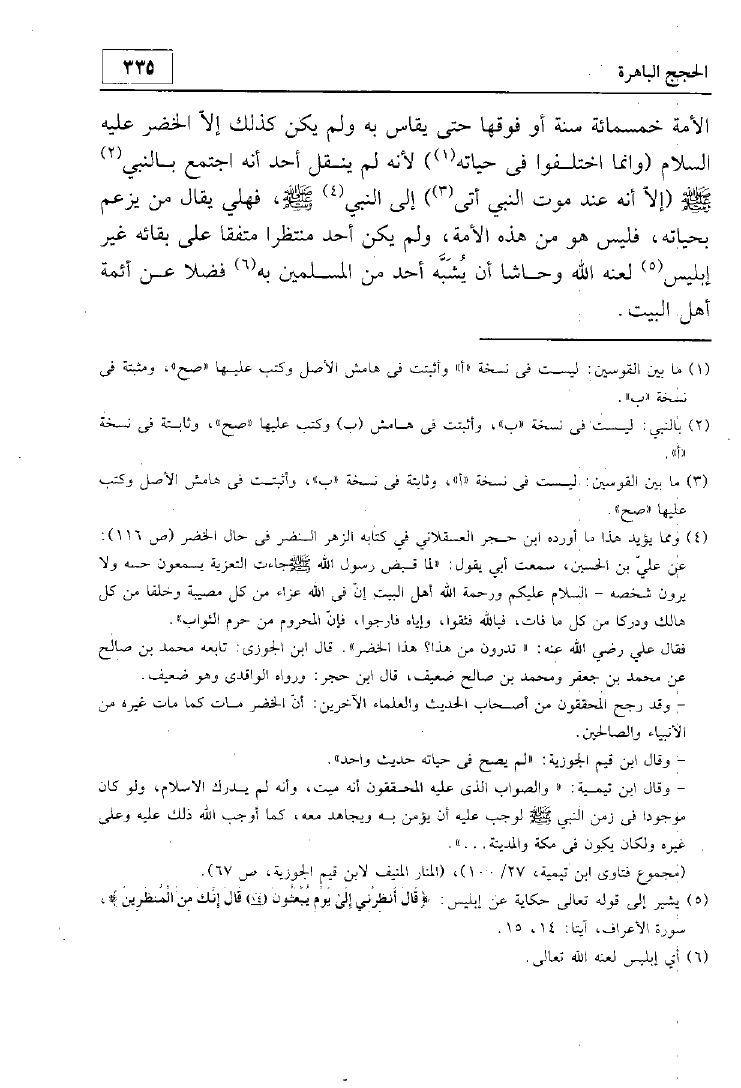 الحجج الباهرة
٣٣٥
الأمة خمسمائة سنة أو فوقها حتى يقاس به ولم يكن كذلك إلاّ الخضر عليه
السلام (وانما اختلفوا فى حياته(١)) لأنه لم ينقل أحد أنه اجتمع بالنبي(٢)
ﷺ (إلاّ أنه عند موت النبي أتى(٣)) إلى النبي(٤) ﷺ، فهلي يقال من يزعم
بحياته، فليس هو من هذه الأمة، ولم يكن أحد منتظرا متفقا على بقائه غير
إبليس(٥) لعنه الله وحاشا أن يُشبَّه أحد من المسلمين به(٦) فضلا عن أئمة
أهل البيت.
(١) ما بين القوسين: ليست فى نسخة «أ» وأثبتت فى هامش الأصل وكتب عليها «صح»، ومثبتة فى
نسخة «ب».
(٢) بالنبي: ليست فى نسخة «ب»، وأثبتت فى هامش (ب) وكتب عليها «صح»، وثابتة فى نسخة
«أ».
(٣) ما بين القوسين: ليست فى نسخة «أ»، وثابتة فى نسخة «ب»، وأثبتت فى هامش الأصل وكتب
عليها «صح».
(٤) ومما يؤيد هذا ما أورده ابن حجر العسقلاني في كتابه الزهر النضر فى حال الخضر (ص ١١٦):
عن عليّ بن الحسين، سمعت أبي يقول: «لما قبض رسول الله ﷺ جاءت التعزية يسمعون حسه ولا
يرون شخصه - السلام عليكم ورحمة الله أهل البيت إنّ فى الله عزاء من كل مصيبة وخلفا من كل
هالك ودركا من كل ما فات، فبالله فثقوا، وإياه فارجوا، فإنّ المحروم من حرم الثواب».
فقال علي رضي الله عنه: « تدرون من هذا؟ هذا الخضر». قال ابن الجوزى: تابعه محمد بن صالح
عن محمد بن جعفر ومحمد بن صالح ضعيف، قال ابن حجر: ورواه الواقدى وهو ضعيف.
- وقد رجح المحققون من أصحاب الحديث والعلماء الآخرين: أنّ الخضر مات كما مات غيره من
الأنبياء والصالحين.
- وقال ابن قيم الجوزية: «لم يصح فى حياته حديث واحد».
- وقال ابن تيمية: « والصواب الذى عليه المحققون أنه ميت، وأنه لم يدرك الاسلام، ولو كان
موجودا في زمن النبي ﷺ لوجب عليه أن يؤمن به ويجاهد معه، كما أوجب الله ذلك عليه وعلى
غيره ولكان يكون فى مكة والمدينة ...».
(مجموع فتاوى ابن تيمية، ٢٧/ ١٠٠)، (المنار المنيف لابن قيم الجوزية، ص ٦٧).
(٥) يشير إلى قوله تعالى حكاية عن إبليس: ﴿قَالَ أَنظِرْنِي إِلَىٰ يَوْمِ يُبْعَثُونَ (١٤) قَالَ إِنَّكَ مِنَ الْمُنظَرِينَ﴾،
سورة الأعراف، آيتا: ١٤، ١٥.
(٦) أي إبليس لعنه الله تعالى.